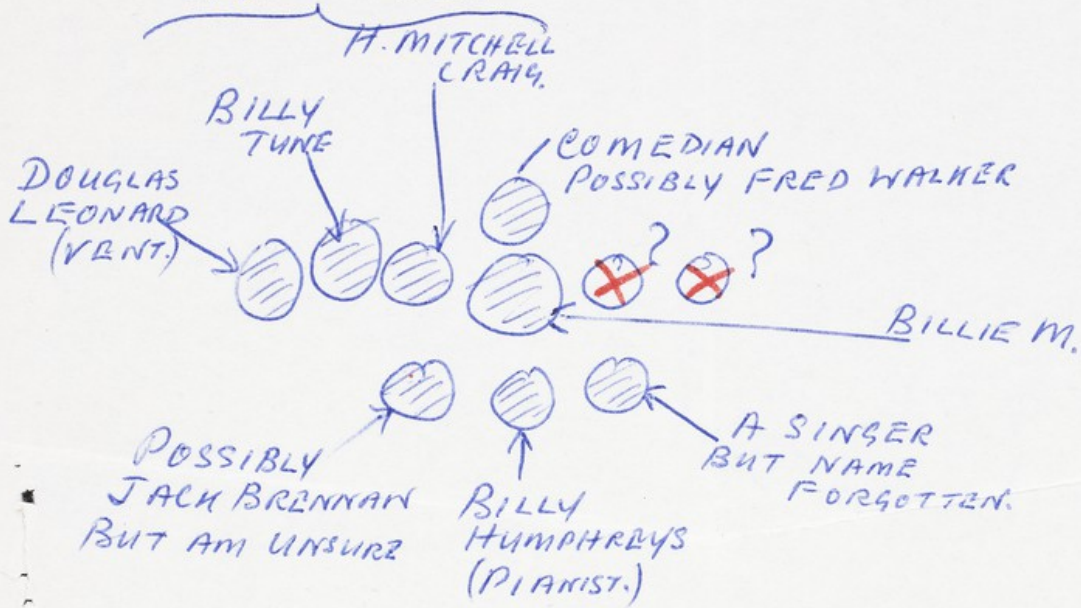 H. MITCHELL
CRAIG.
BILLY
TUNE
COMEDIAN
POSSIBLY FRED WALKER
DOUGLAS
LEONARD
(VENT.)
? ?
BILLIE M.
POSSIBLY
JACK BRENNAN
BUT AM UNSURE
BILLY
HUMPHREYS
(PIANIST.)
A SINGER
BUT NAME
FORGOTTEN.